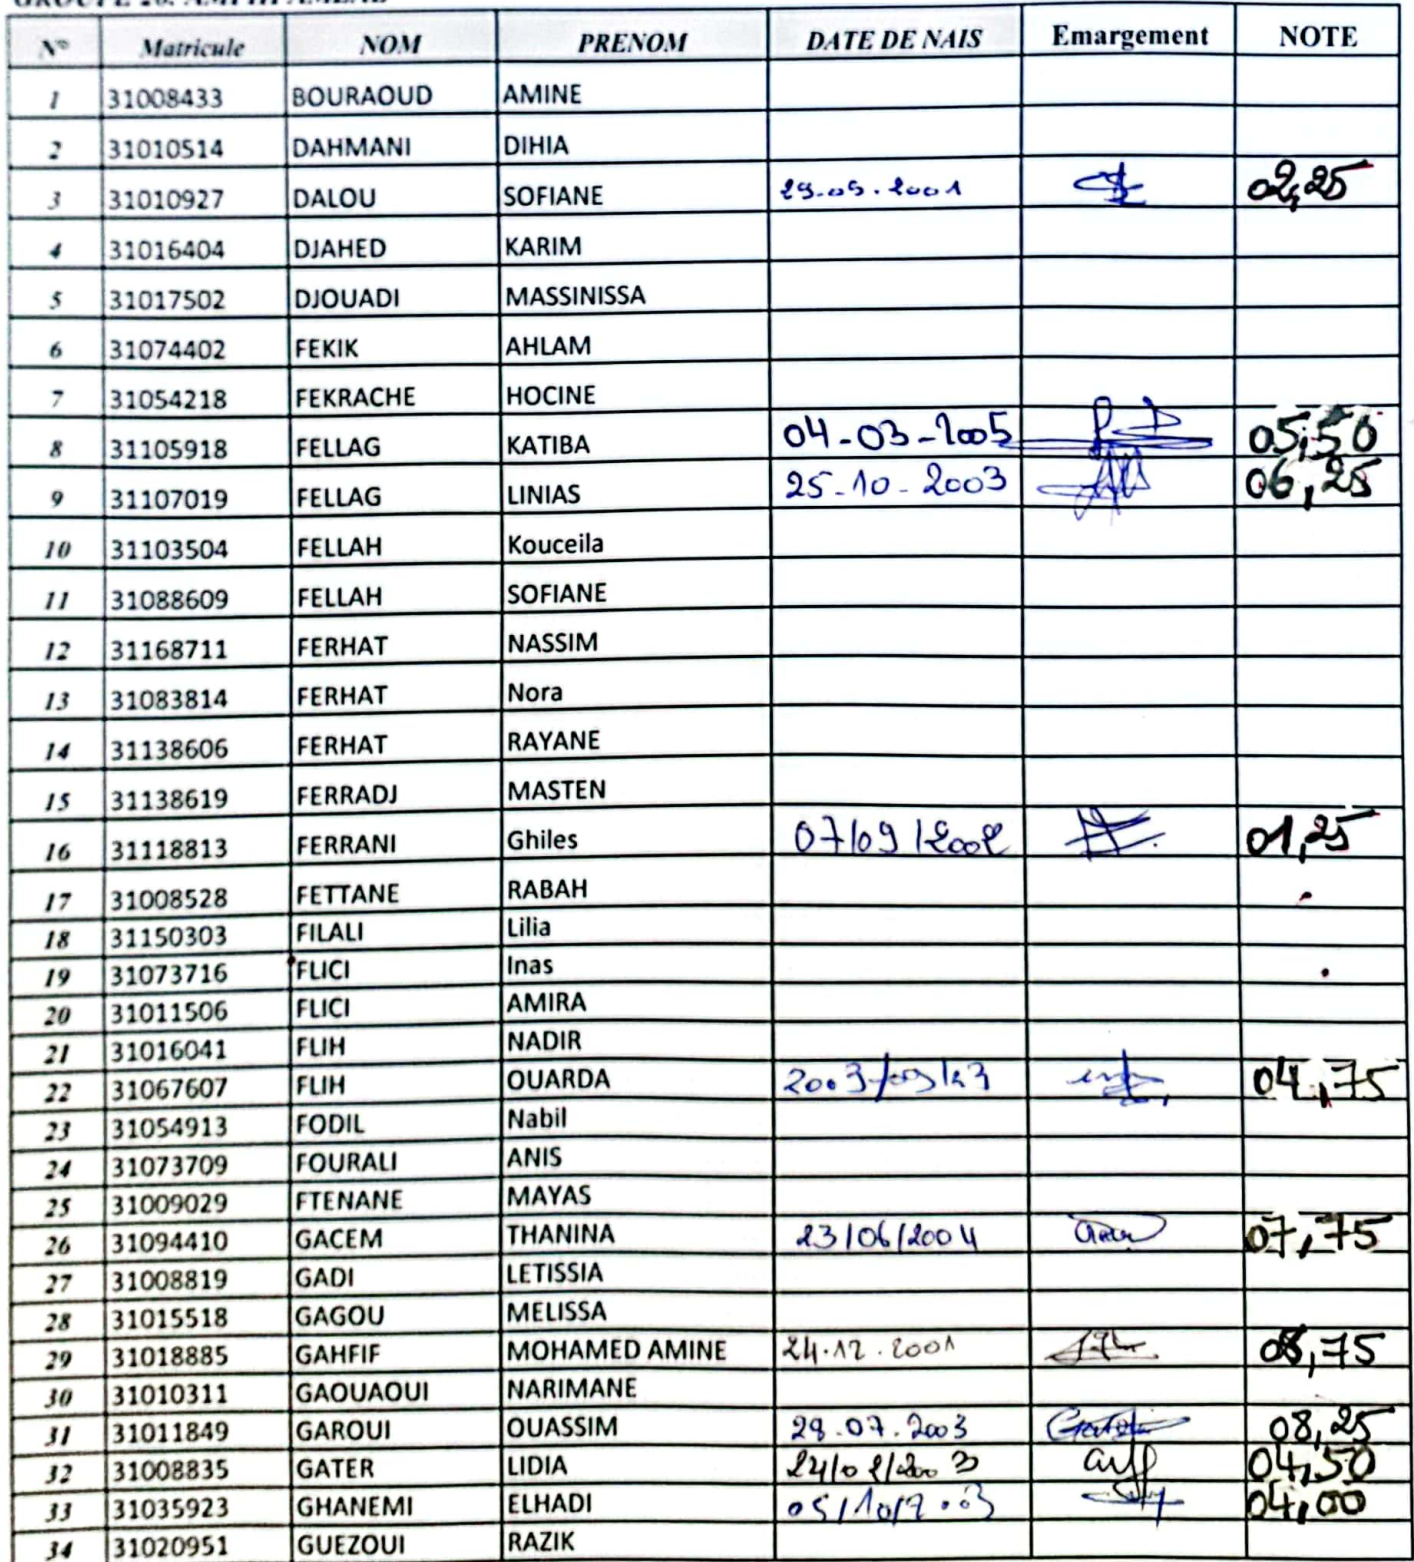 N° Matricule NOM PRENOM DATE DE NAIS Emargement NOTE
1 31008433 BOURAOUD AMINE
2 31010514 DAHMANI DIHIA
3 31010927 DALOU SOFIANE 29.09.2001 02,25
4 31016404 DJAHED KARIM
5 31017502 DJOUADI MASSINISSA
6 31074402 FEKIK AHLAM
7 31054218 FEKRACHE HOCINE
8 31105918 FELLAG KATIBA 04-03-2005 05,50
9 31107019 FELLAG LINIAS 25-10-2003 06,25
10 31103504 FELLAH Kouceila
11 31088609 FELLAH SOFIANE
12 31168711 FERHAT NASSIM
13 31083814 FERHAT Nora
14 31138606 FERHAT RAYANE
15 31138619 FERRADJ MASTEN
16 31118813 FERRANI Ghiles 07/09/2002 01,25
17 31008528 FETTANE RABAH
18 31150303 FILALI Lilia
19 31073716 FLICI Inas
20 31011506 FLICI AMIRA
21 31016041 FLIH NADIR
22 31067607 FLIH OUARDA 04,75
23 31054913 FODIL Nabil
24 31073709 FOURALI ANIS
25 31009029 FTENANE MAYAS
26 31094410 GACEM THANINA 23/06/2004 07,75
27 31008819 GADI LETISSIA
28 31015518 GAGOU MELISSA
29 31018885 GAHFIF MOHAMED AMINE 24.12.2001 08,75
30 31010311 GAOUAOUI NARIMANE
31 31011849 GAROUI OUASSIM 29.07.2003 08,25
32 31008835 GATER LIDIA 04,50
33 31035923 GHANEMI ELHADI 05/10/2003 04,00
34 31020951 GUEZOUI RAZIK